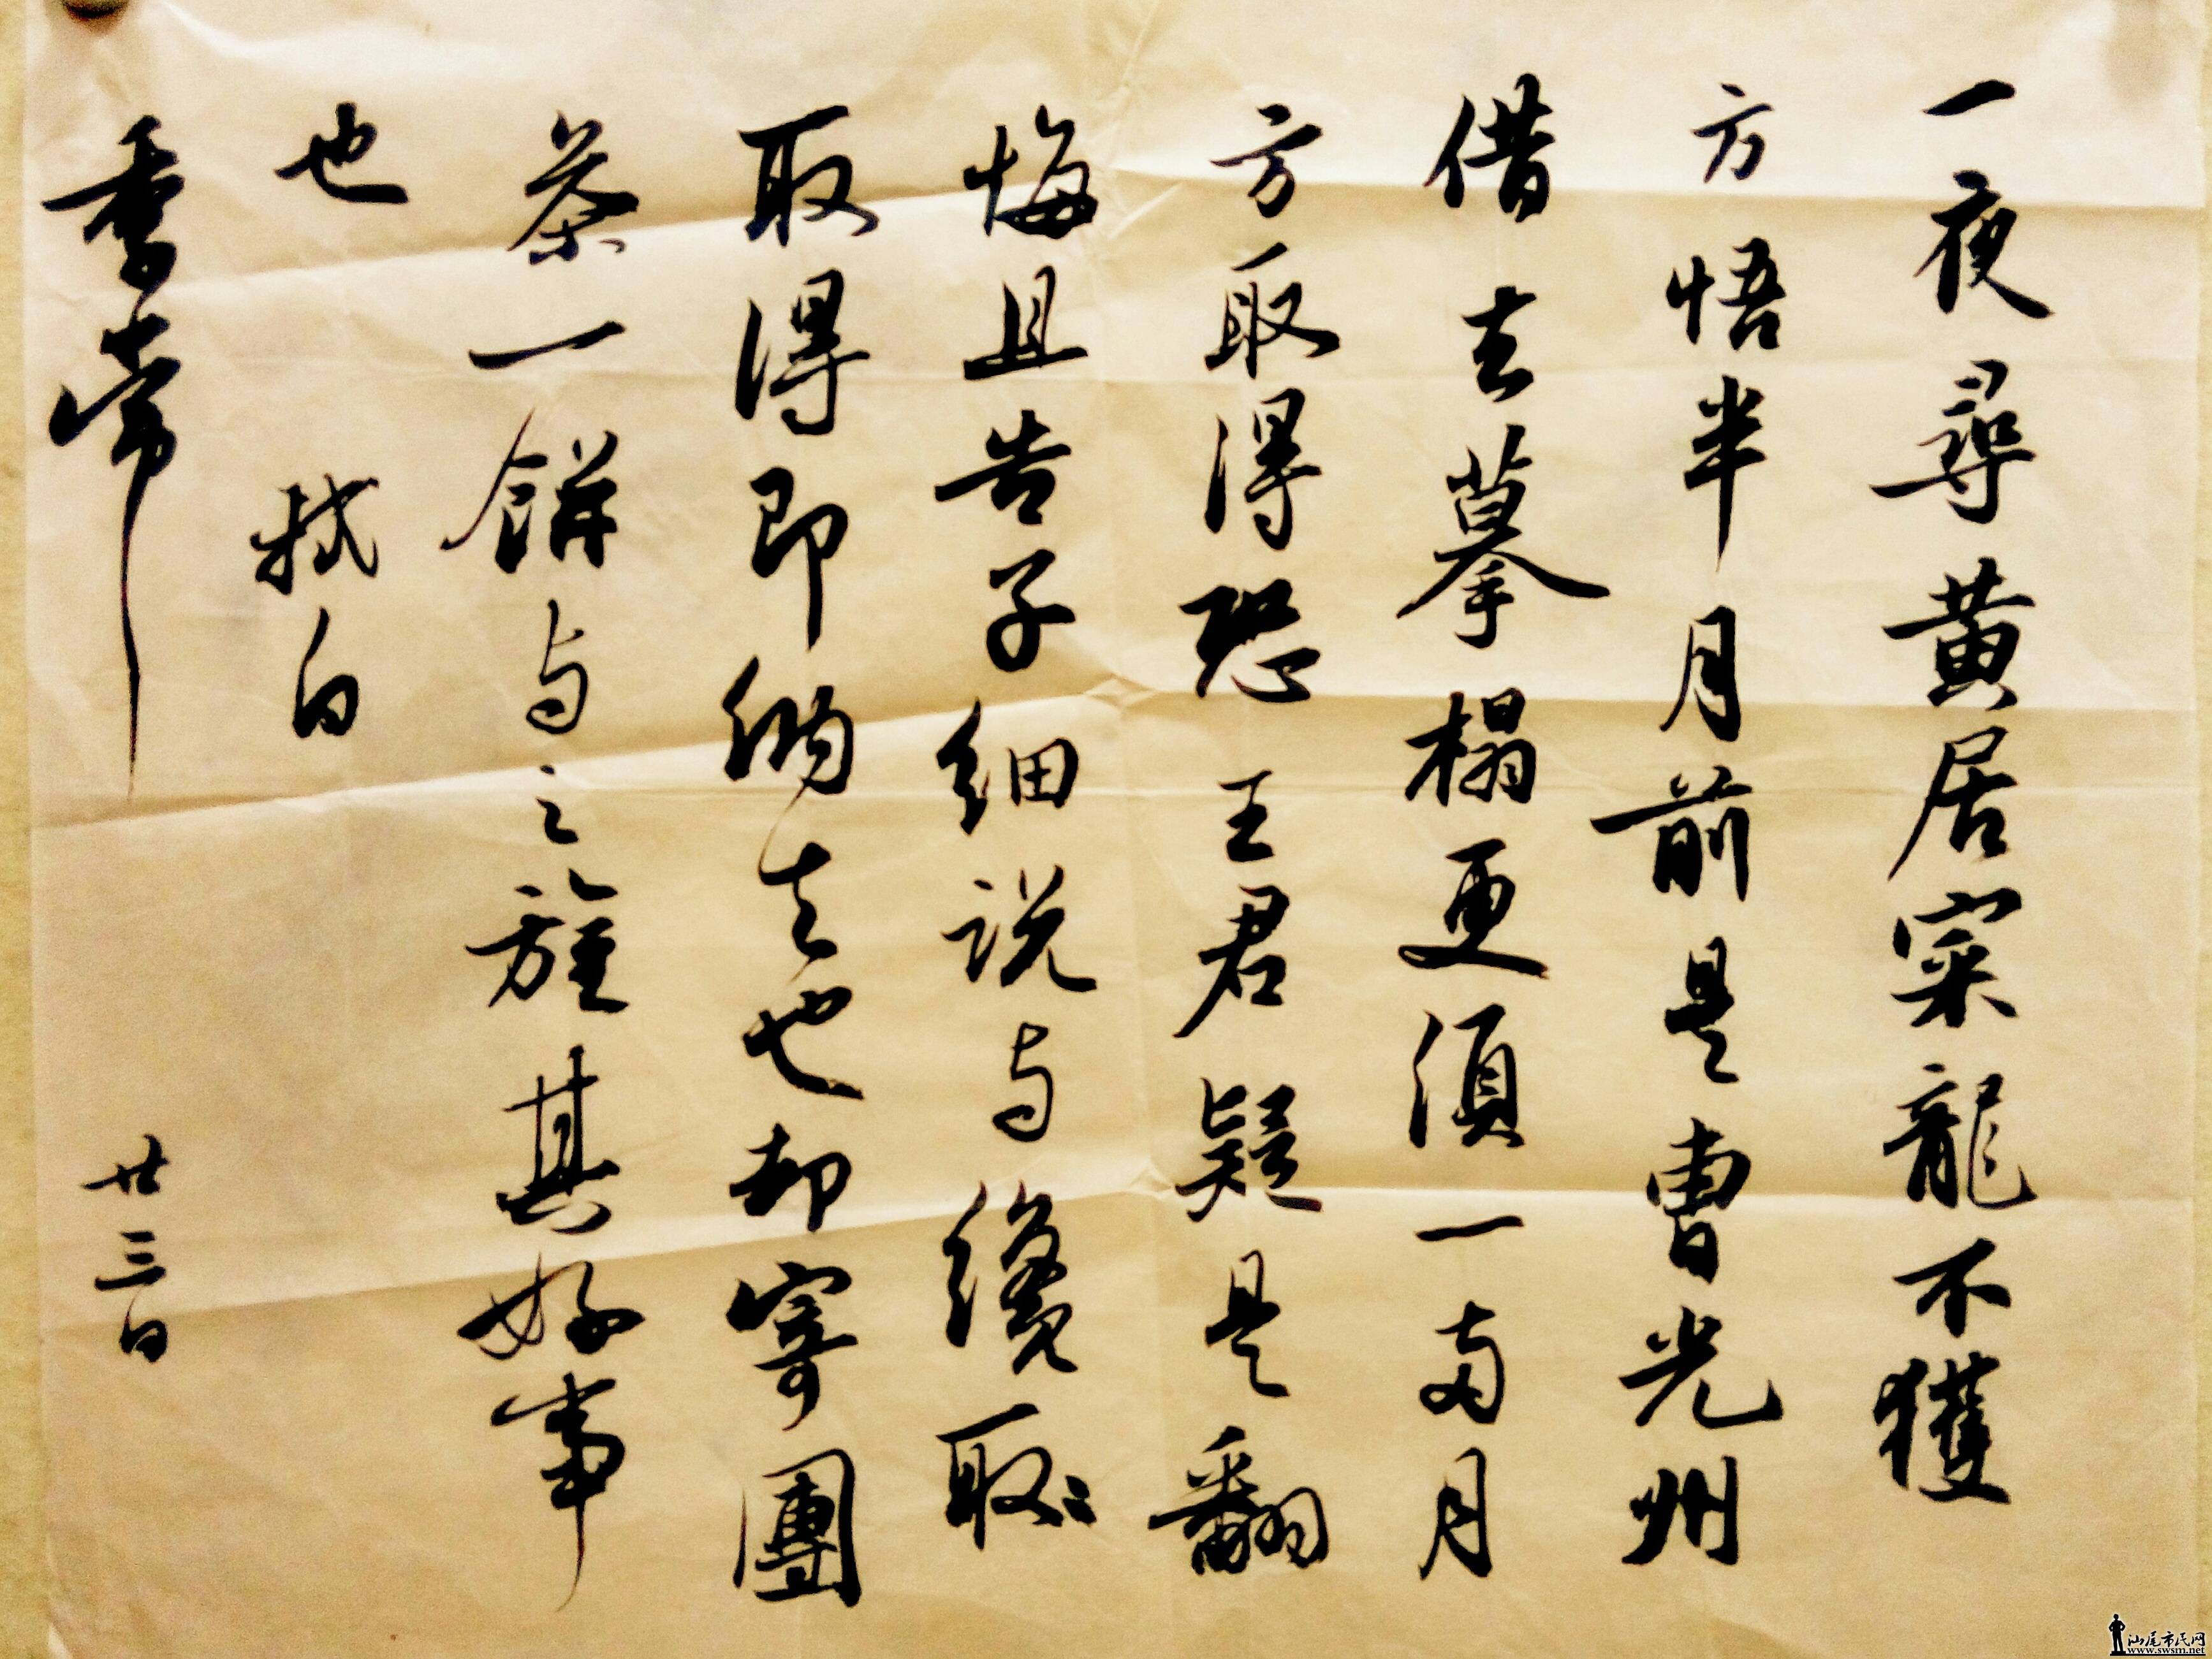 一夜尋黃居寀龍不獲
方悟半月前是曹光州
借去摹榻更須一兩月
方取得恐王君疑是翻
悔且告子細說与纔取〻
取得即納去也却寄團
茶一餅与之旌其好事
也 軾白
季常 廿三日
汕尾市民网
www.swsm.net